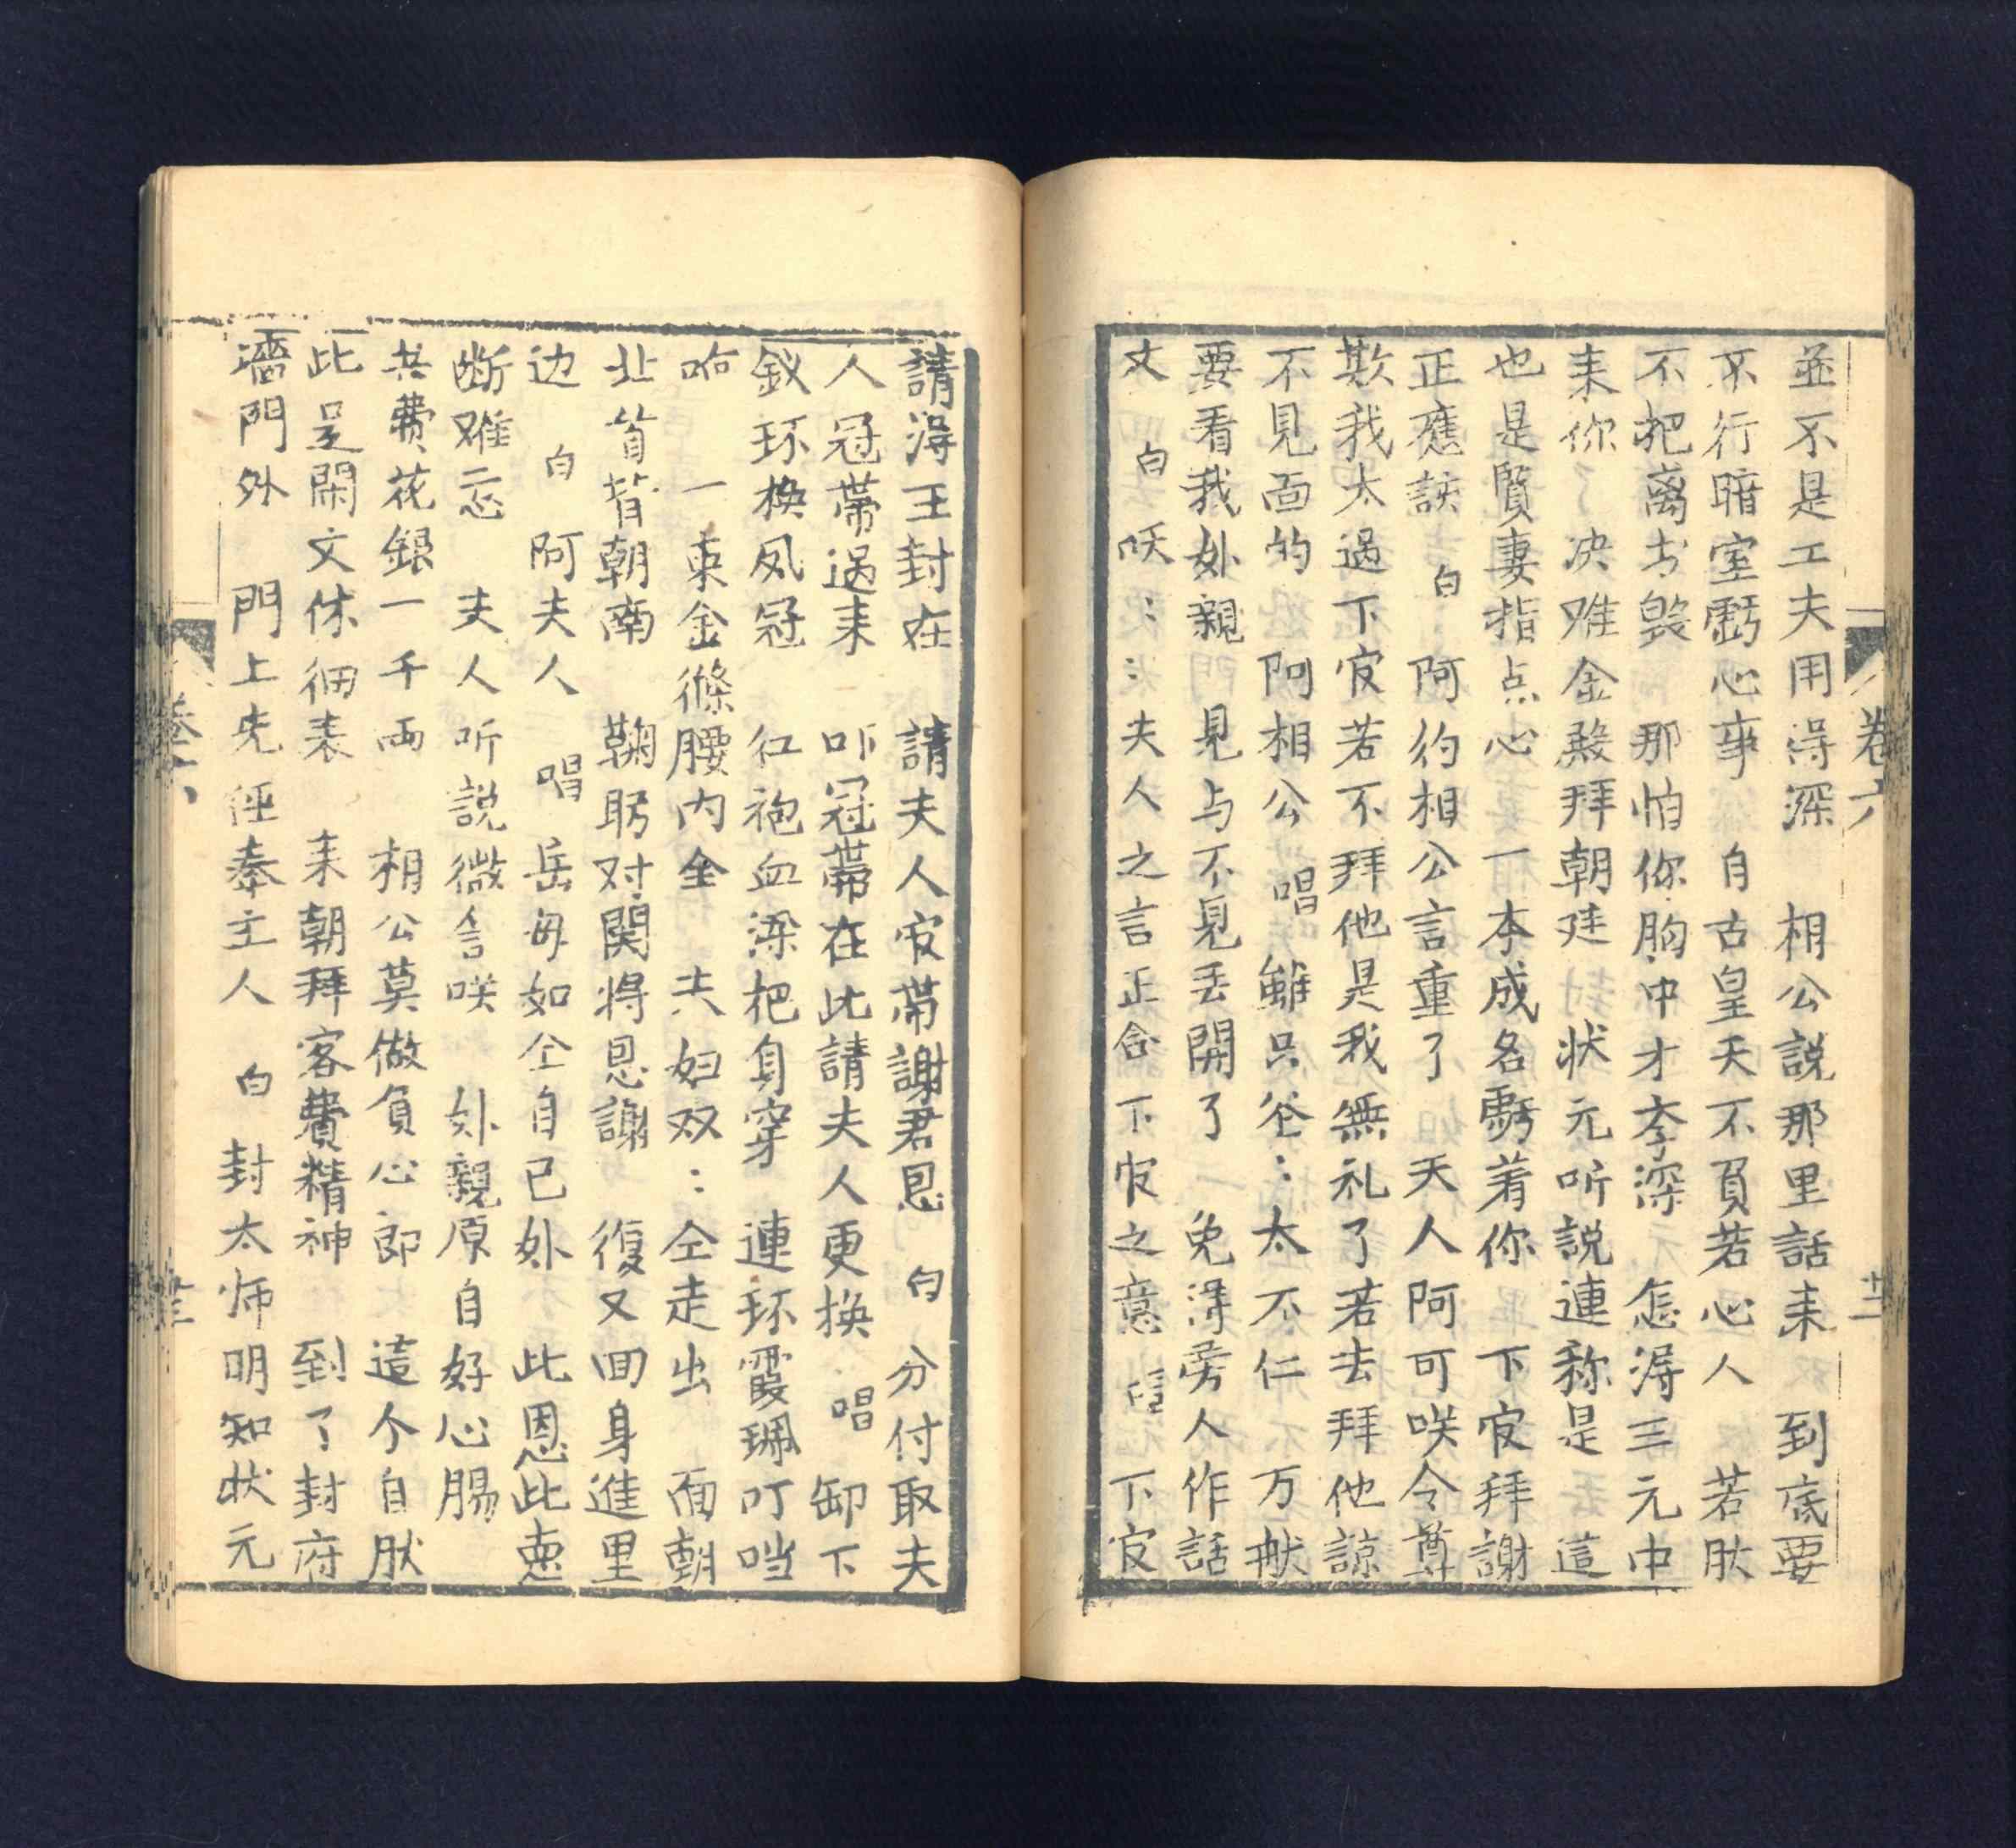 並不是工夫用得深　相公説那里話来　到底要
不行暗室虧心事　自古皇天不負若心人　若肰
不把离书毁　那怕你胸中才李深　怎得三元中
来你　决难金殿拜朝廷　状元听説連称是　這
也是賢妻指点心　一本成名虧着你　下官拜謝
正應該　白　阿约相公言重了　天人阿可咲令尊
欺我太过下官若不拜他是我無礼了若去拜他諒
不見面的　阿相公　唱　雖只爹：太不仁　万猷
要看我外親　見与不見丢開了　免得旁人作話
文　白　呀：：夫人之言正合下官之意　下官
卷六
廿二
請得王封在　請夫人官带謝君恩　白　分付取夫
人冠带过来　吓冠带在此請夫人更换　唱　卸下
釵环换凤冠　红袍血染把身穿　連环霞珮叮噹
响　一束金絛腰内全　夫妇双：仝走出　面朝
北首背朝南　鞠躬对闕将恩謝　復又囬身進里
边　白　阿夫人　唱　岳母如仝自已外　此恩此恵
断难忘　夫人听説微含咲　外親原自好心腸
共費花銀一千両　相公莫做負心郎　這个自肰
此是閑文休细表　来朝拜客費精神　到了封府
墻門外　門上先徑奉主人　白　封太师明知状元
卷六